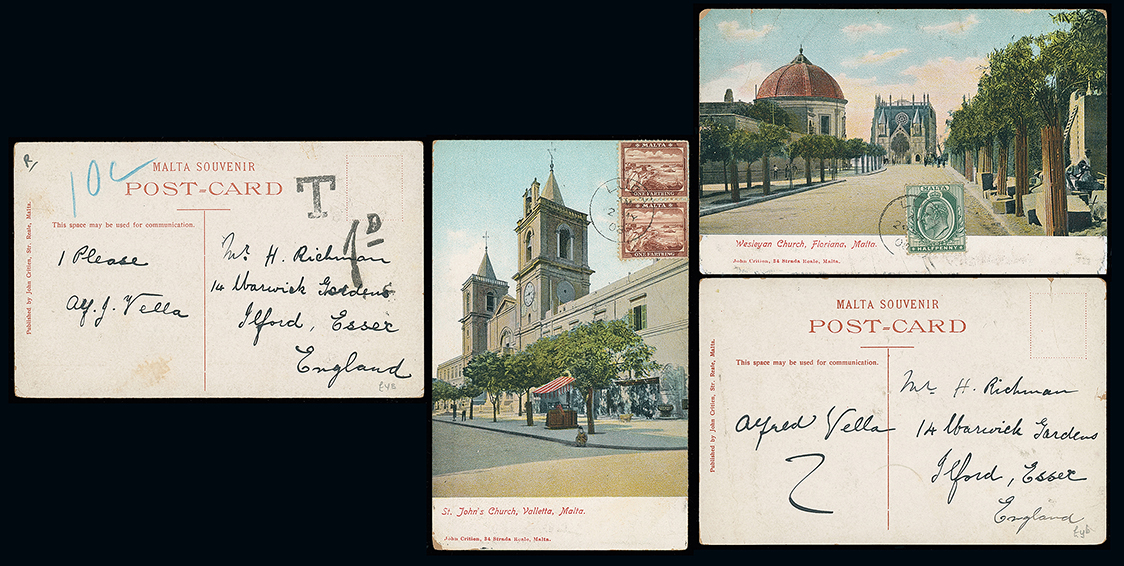 R
10c
MALTA SOUVENIR
POST-CARD
T
1D
This space may be used for communication.
Published by John Critien, Str. Reale, Malta.
1 Please
Alf. J. Vella
Mr H. Richman
14 Warwick Gardens
Ilford, Essex
England
£48
MALTA
ONE FARTHING
MALTA
ONE FARTHING
St. John's Church, Valletta, Malta.
John Critien, 34 Strada Reale, Malta.
MALTA
HALFPENNY
Wesleyan Church, Floriana, Malta.
John Critien, 34 Strada Reale, Malta.
MALTA SOUVENIR
POST-CARD
This space may be used for communication.
Published by John Critien, Str. Reale, Malta.
Alfred Vella
2
Mr H. Richman
14 Warwick Gardens
Ilford, Essex
England